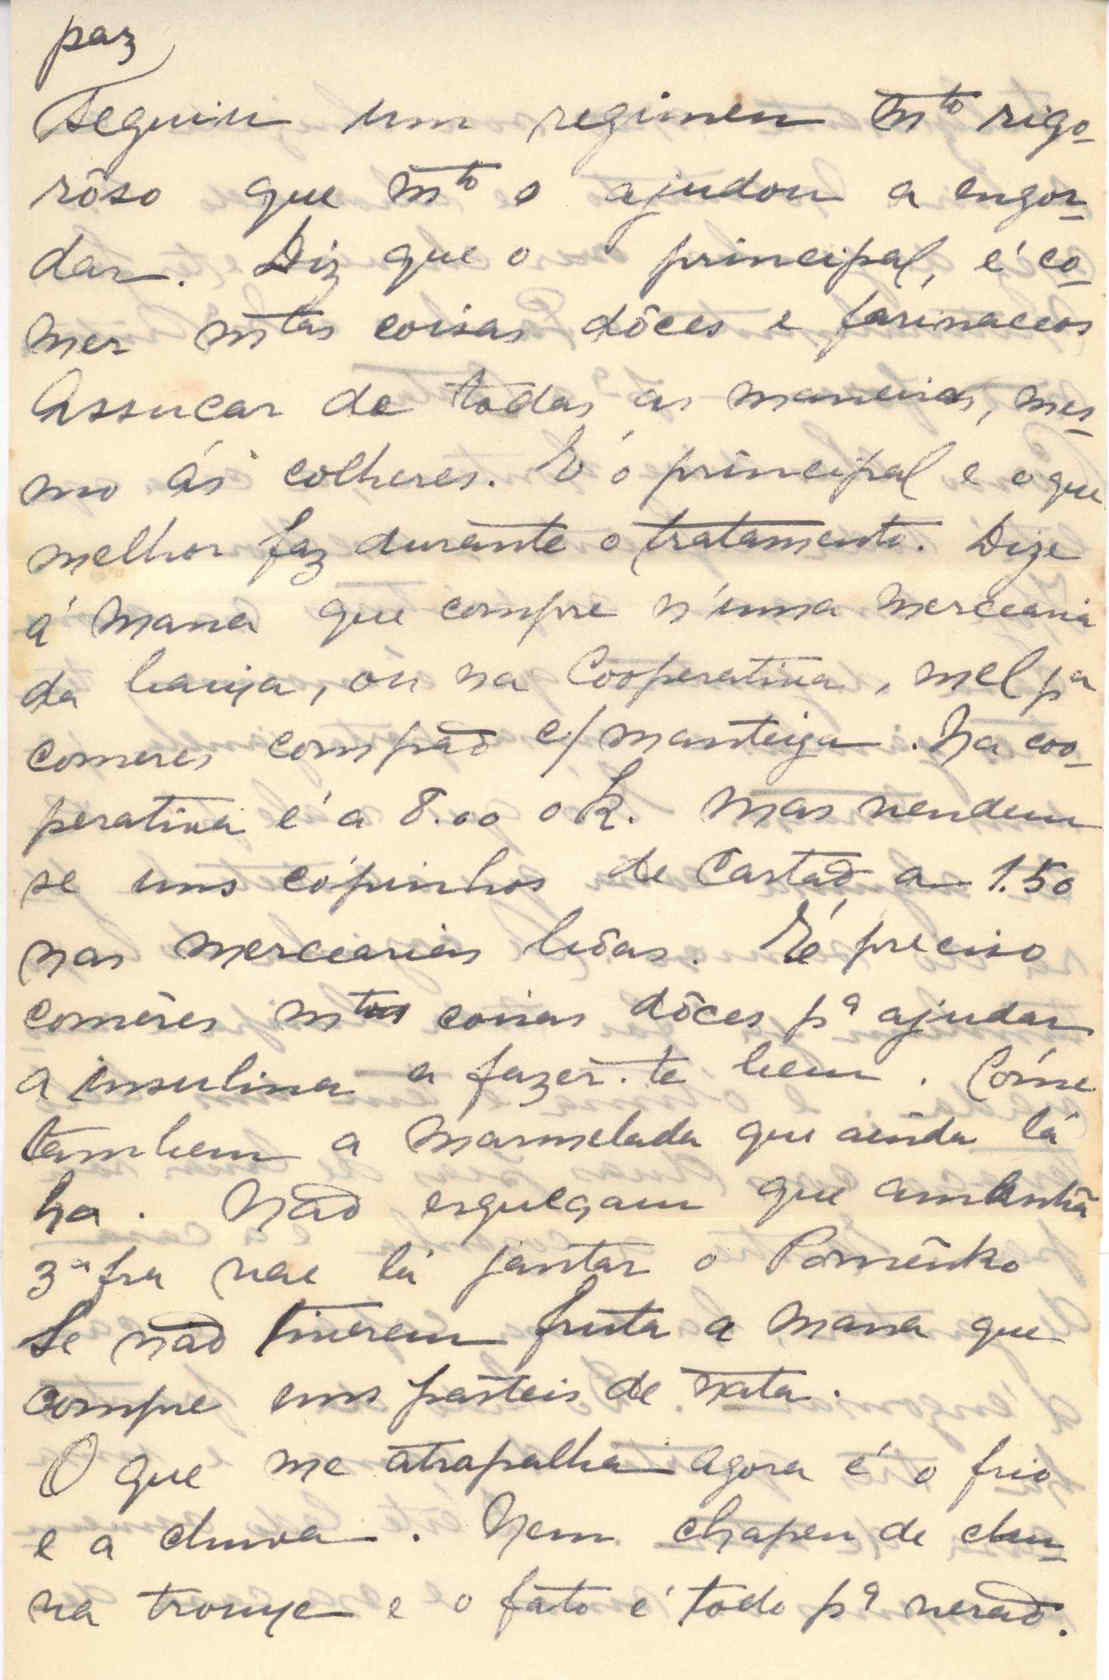 paz
Seguiu um regimen mto rigo-
rôso que mto o ajudou a engor-
dar. Diz que o principal, é co-
mer mtas coisas dôces e farinaceos
Assucar de todas as maneiras, mes-
mo ás colheres. É o principal e o que
melhor faz durante o tratamento. Dize
á mana que compre n'uma mercearia
da baixa, ou na Cooperativa, mel pa
comeres com pão c/ manteiga. Na coo-
perativa é a 8.00 o k. Mas vendem
se uns copinhos de Cartão a 1.50
nas mercearias bôas. É preciso
comêres mtas coisas dôces pa ajudar
a insulina a fazer-te bem. Cóme
tambem a marmelada que ainda lá
ha. Não esqueçam que amanhã
3a fra vae lá jantar o
Se não tiverem fruta a mana que
compre uns pasteis de nata.
O que me atrapalha agora é o frio
e a chuva. Nem chapeu de chu-
va trouxe e o fato é todo pa verão.